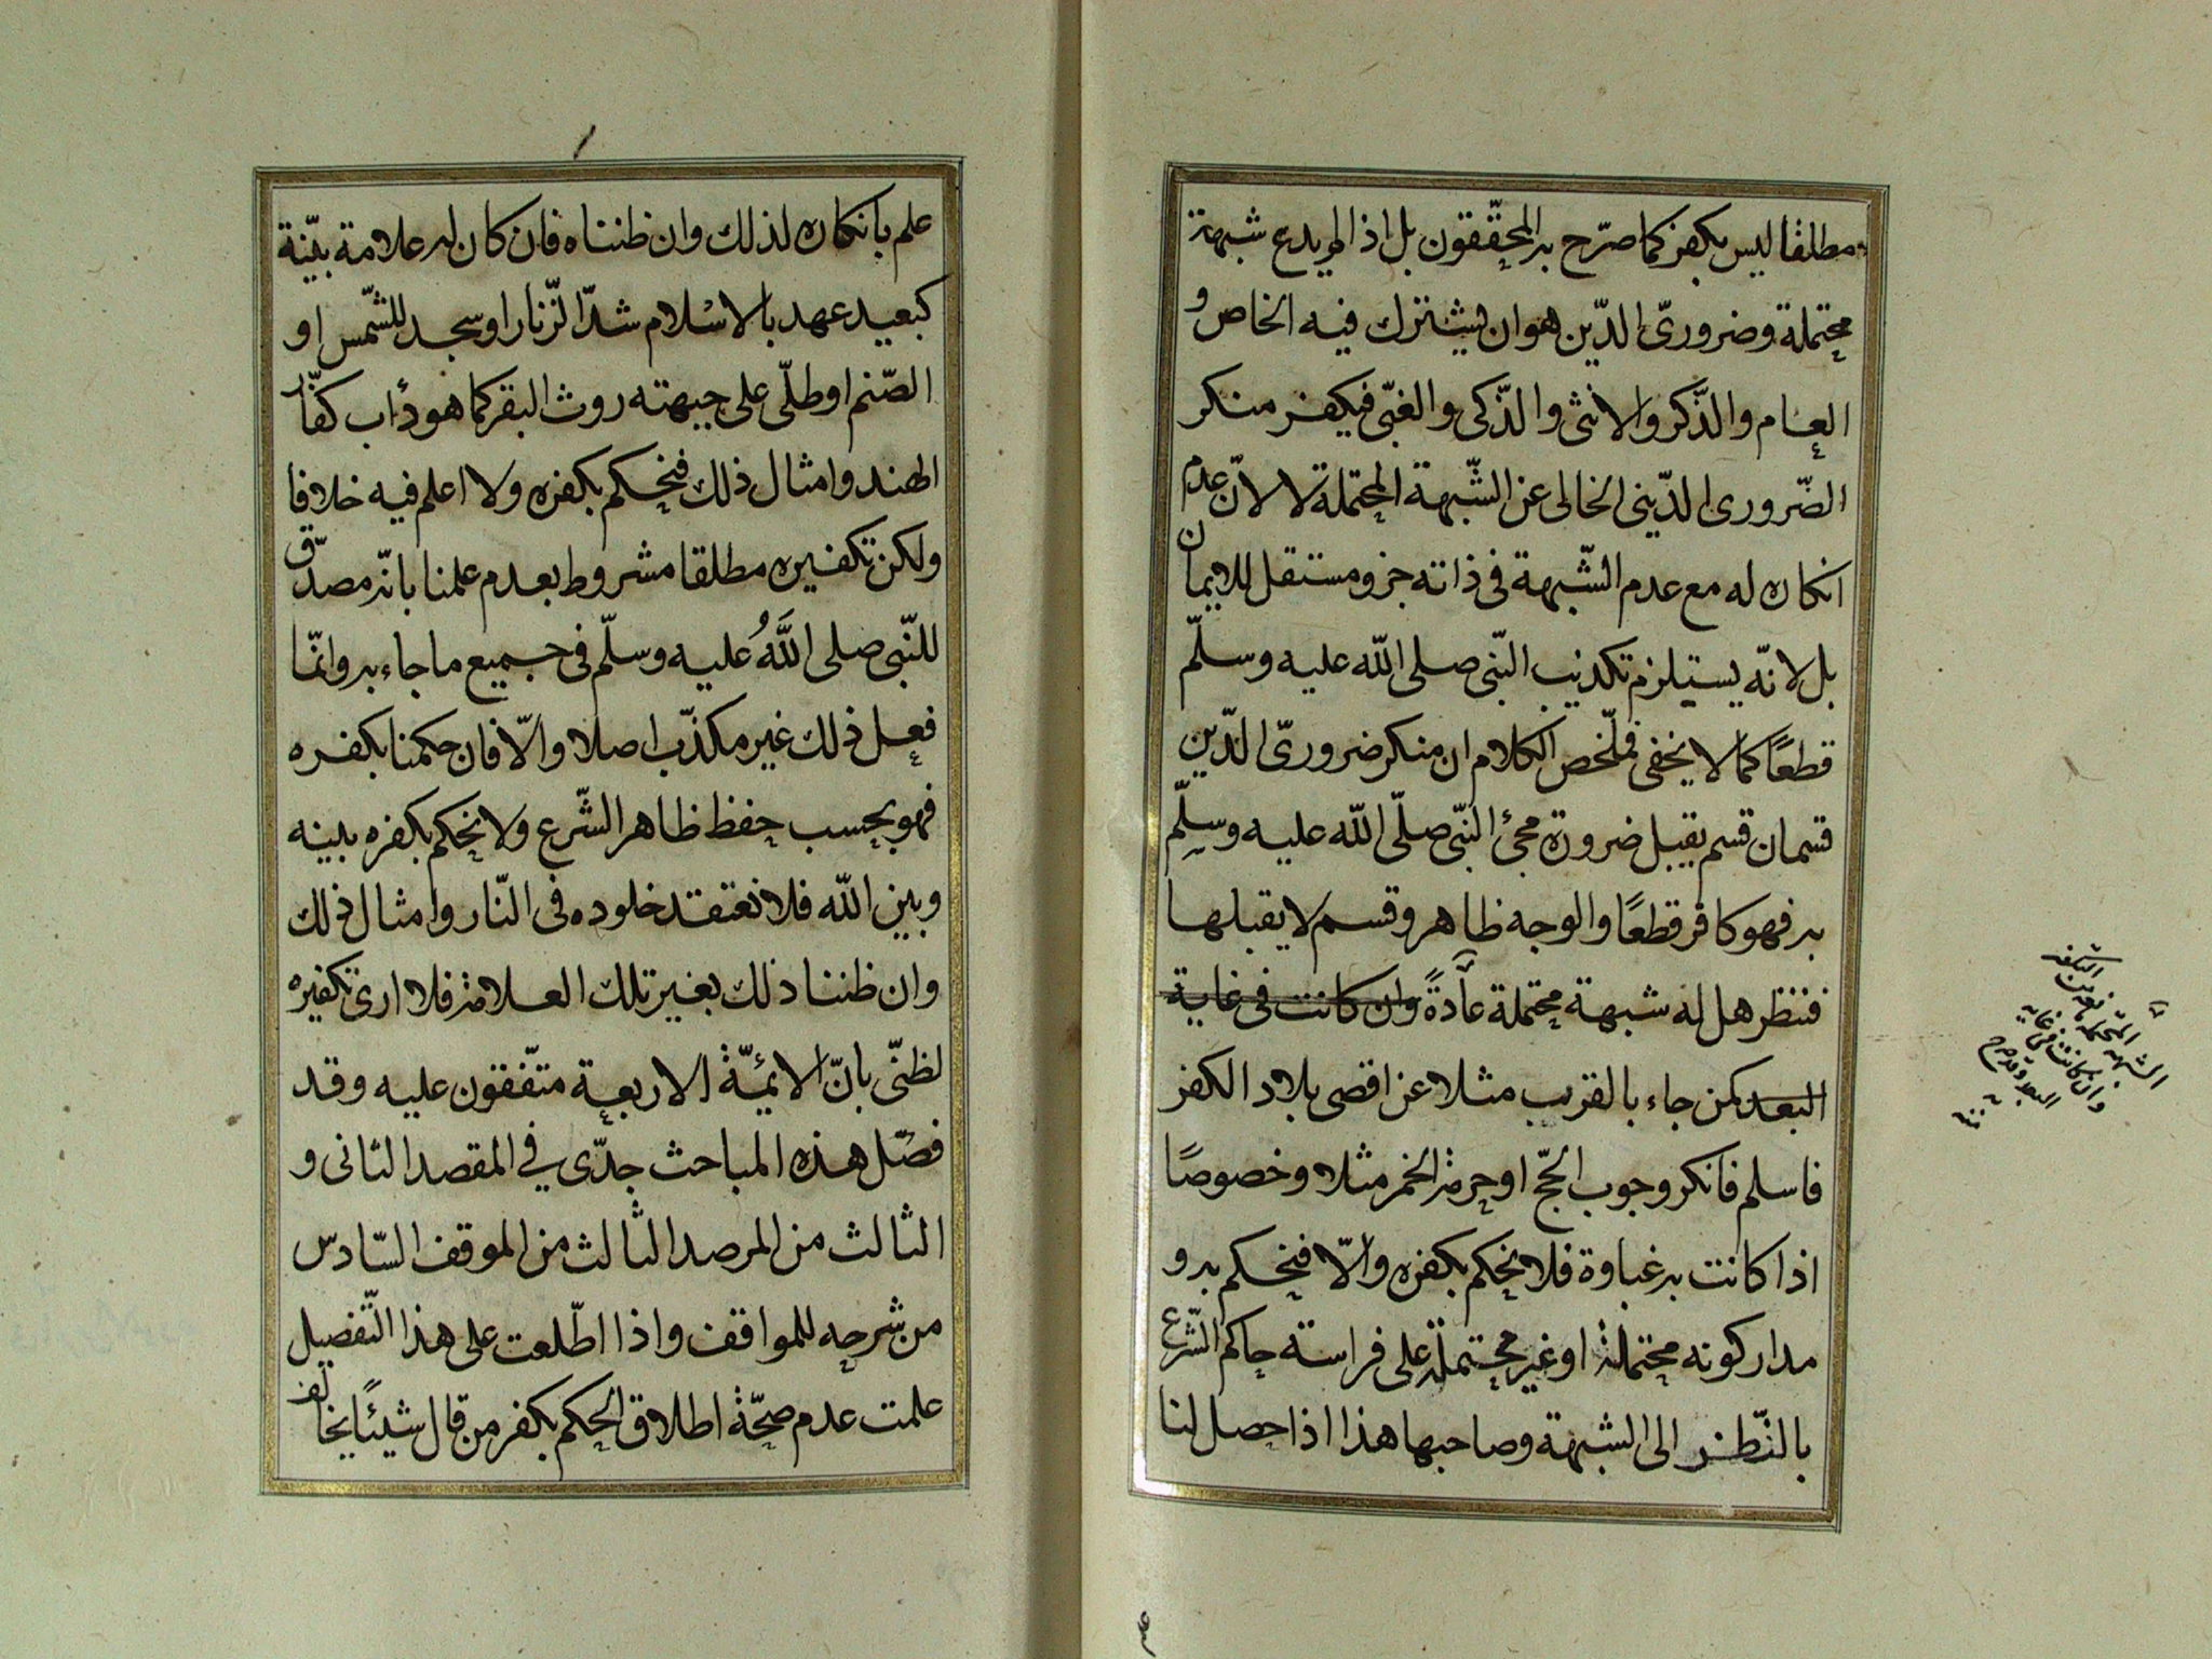 مطلقا ليس بكفر كما صرّح به المحقّقون بل اذا لم يدع شبهة
محتملة وضرورىّ الدّين هو ان يشترك فيه الخاص و
العام والذّكر والانثى والذّكى والغبّى فيكفر منكر
الضّرورى الدّينى الخالى عن الشّبهة المحتملة لا لانّ عدم
انكاره له مع عدم الشّبهة فى ذاته جزو مستقل للايمان
بل لانّه يستلزم تكذيب النّبى صلى اللّه عليه وسلّم
قطعًا كما لا يخفى فملّخص الكلام ان منكر ضرورىّ الدّين
قسمان قسم يقبل ضرورة مجئ النّبى صلّى اللّه عليه وسلّم
به فهو كافر قطعًا والوجه ظاهر وقسم لا يقبلها
فننظر هل له شبهة محتملة عادةً وان كانت فى غاية
البعد كمن جاء بالقريب مثلا عن اقصى بلاد الكفر
فاسلم فانكر وجوب الحجّ او حرمة الخمر مثلا وخصوصًا
اذا كانت به غباوة فلا نحكم بكفره والّا فنحكم به و
مدار كونه محتملة او غير محتملة على فراسة حاكم الشّرع
بالنّظر الى الشبهة وصاحبها هذا اذا حصل لنا
الشبهة المحتملة
وان كانت فى غاية
البعد
علم بانكاره لذلك وان ظنناه فان كان له علامة بيّنة
كبعيد عهد بالاسْلام شدّ الزّنار او سجد للشّمس او
الصّنم او طلّى على جبهته روث البقر كما هو دأب كفّار
الهند وامثال ذلك فنحكم بكفره ولا اعلم فيه خلافا
ولكن تكفيره مطلقا مشروط بعدم علمنا بانّه مصدّق
للنّبى صلى اللَّهُ عليه وسلّم فى جميع ما جاء به وانّما
فعل ذلك غير مكذّب اصلا والّا فان حكمنا بكفره
فهو بحسب حفظ ظاهر الشّرع ولا نحكم بكفره بينه
وبين اللّه فلا نعتقد خلوده فى النّار وامثال ذلك
وان ظننا ذلك بغير تلك العلامة فلا ارى تكفيره
لظنّى بانّ الائمّة الاربعة متّفقون عليه وقد
فصّل هذه المباحث جدّى في المقصد الثانى و
الثالث من المرصد الثالث من الموقف السّادس
من شرحه للمواقف واذا اطّلعت على هذا التّفصيل
علمت عدم صحّة اطلاق الحكم بكفر من قال شيئًا يخالف